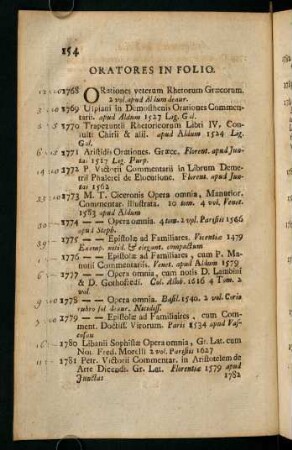 154
ORATORES IN FOLIO.
1768 ORationes veterum Rhetorum Græcorum.
2 vol. apud Aldum deaur.
1769 Ulpiani in Demosthenis Orationes Commen-
tarii. apud Aldum 1527 Lig. Gal.
1770 Trapezuntii Rhetoricorum Libri IV. Con-
sulti Chirii & alii. apud Aldum 1524 Lig.
Gal.
1771 Aristidis Orationes. Græce. Florent. apud Jun-
tas. 1517 Lig. Purp.
1772 P. Victorii Commentarii in Librum Deme-
trii Phalerei de Elocutione. Florent. apud Jun-
tas 1562
1773 M. T. Ciceronis Opera omnia, Manutior.
Commentar. Illustrata. 10 tom. 4 vol. Venet.
1583 apud Aldum
1774 — — Opera omnia. 4 tom. 2 vol. Parisiis 1566
apud Steph.
1775 — — Epistolæ ad Familiares. Vicentiæ 1479
Exemp. nitid. & elegant. compactum
1776 — — Epistolæ ad Familiares, cum P. Ma-
nutii Commentariis. Venet. apud Aldum 1579
1777 — — Opera omnia, cum notis D. Lambini
& D. Gothofredi. Col. Allob. 1616 4 Tom. 2
vol.
1778 — — Opera omnia. Basil. 1540. 2 vol. Corio
rubro sol deaur. Nitidiss.
1779 — — Epistolæ ad Familiares, cum Com-
ment. Doctiss. Virorum. Paris 1534 apud Vas-
cosau
1780 Libanii Sophistæ Opera omnia, Gr. Lat. cum
Not. Fred. Morelli 2 vol. Parisiis 1627
1781 Petr. Victorii Commentar. in Aristotelem de
Arte Dicendi. Gr. Lat. Florentiæ 1579 apud
Junctas
1782